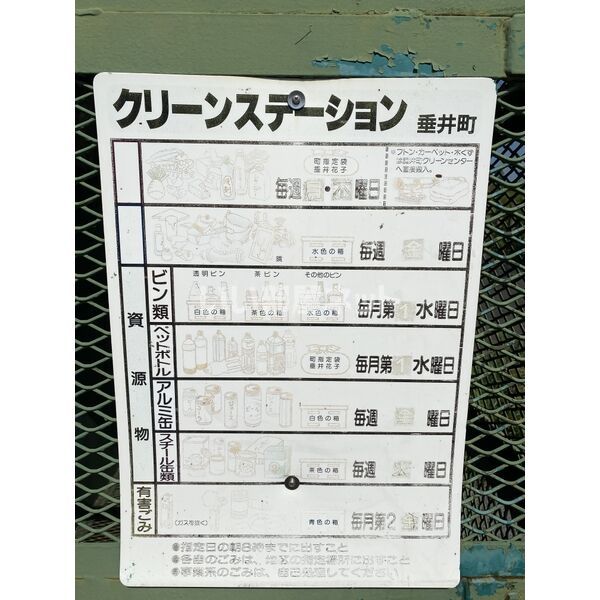 クリーンステーション 垂井町
町指定袋
垂井花子
毎週 ・木曜日
※フトン・カーペット・木くず
は垂井町クリーンセンター
へ直接搬入。
資源物
水色の箱
毎週 金 曜日
ビン類
透明ビン 茶ビン その他のビン
白色の箱 茶色の箱 水色の箱
毎月第1水曜日
ペットボトル
町指定袋
垂井花子
毎月第1水曜日
アルミ缶
白色の箱
毎週 金 曜日
スチール缶類
茶色の箱
毎週 曜日
有害ごみ
(ガスを抜く)
青色の箱
毎月第2金曜日
●指定日の朝8時までに出すこと
●各自のごみは、地域の指定場所に出すこと
●事業系のごみは、自己処理してください